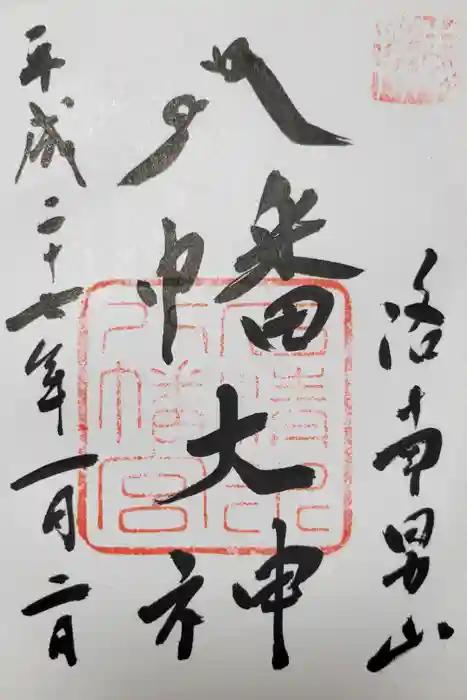 洛南男山
八幡大神
石清水
八幡宮
平成二十七年一月二日